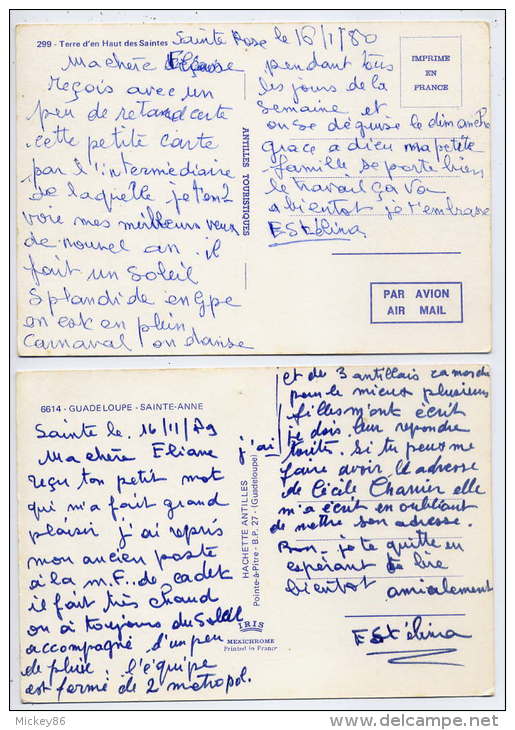 299 - Terre d'en Haut des Saintes
Sainte Rose le 16/1/80
Ma chère Eliane
reçois avec un
peu de retard cette
cette petite carte
par l'intermédiaire
de laquelle je t'en
voie mes meilleurs veux
de nouvel an. il
fait un soleil
Splandide en Gpe
on est en plein
Carnaval on danse
pendant tous
les jours de la
semaine et
on se déguise le dimanche
grace a dieu ma petite
famille se porte bien
le travail ça va
a bientot je t'embrasse
Estélina
ANTILLES TOURISTIQUES
IMPRIME
EN
FRANCE
PAR AVION
AIR MAIL
6614 - GUADELOUPE - SAINTE-ANNE
Sainte le. 16/11/79
Ma chère Eliane j'ai
reçu ton petit mot
qui m'a fait grand
plaisir j'ai repris
mon ancien poste
à la M.F. de cadet
il fait très chaud
on a toujours du soleil
accompagné d'un peu
de pluie l'équipe
est formé de 2 métropol.
et de 3 antillais
pour le mieux plusieurs
filles m'ont écrit
je dois leur repondre
toutes. Si tu peux me
faire avoir le adresse
de Cécile Charrier elle
m'a écrit en oubliant
de mettre son adresse.
Bon. je te quitte en
espérant te lire
bientot amicalement
Estélina
HACHETTE ANTILLES
Pointe-à-Pitre - B.P. 27 - (Guadeloupe)
IRIS
MEXICHROME
Printed in France
Mickey86
www.delcampe.net